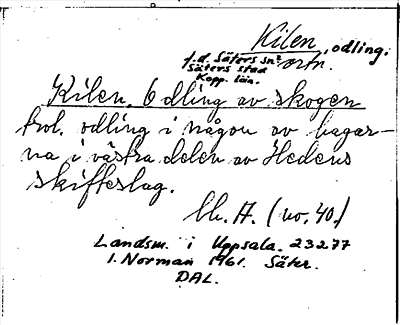 Kilen, odling.
f.d. Säters sn. ortn.
Säters stad
Kopp. län.
Kilen. Odling av skogen
trol. odling i någon av hagar-
na i västra delen av Hedens
skifteslag.
lh. A. (no. 40.)
Landsm. i Uppsala. 23277
I. Norman 1961. Säter.
DAL.